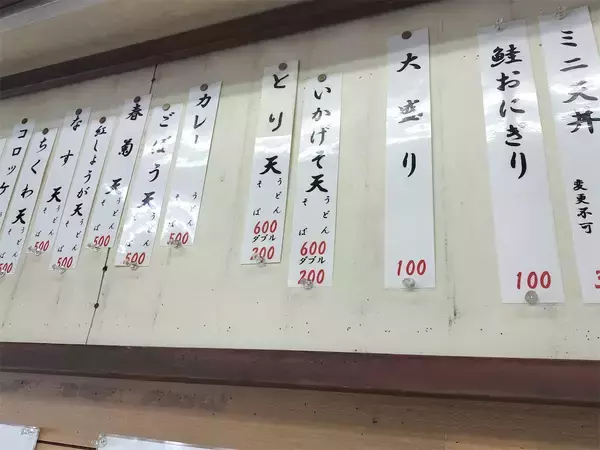 ミニ天丼
変更不可
鮭おにぎり
100
大盛り
100
いかげそ天
うどん
そば
600
ダブル
200
とり天
うどん
そば
600
ダブル
200
カレー
うどん
500
ごぼう天
うどん
そば
500
春菊天
うどん
そば
500
紅しょうが天
うどん
そば
500
なす天
うどん
そば
500
ちくわ天
うどん
そば
500
コロッケ